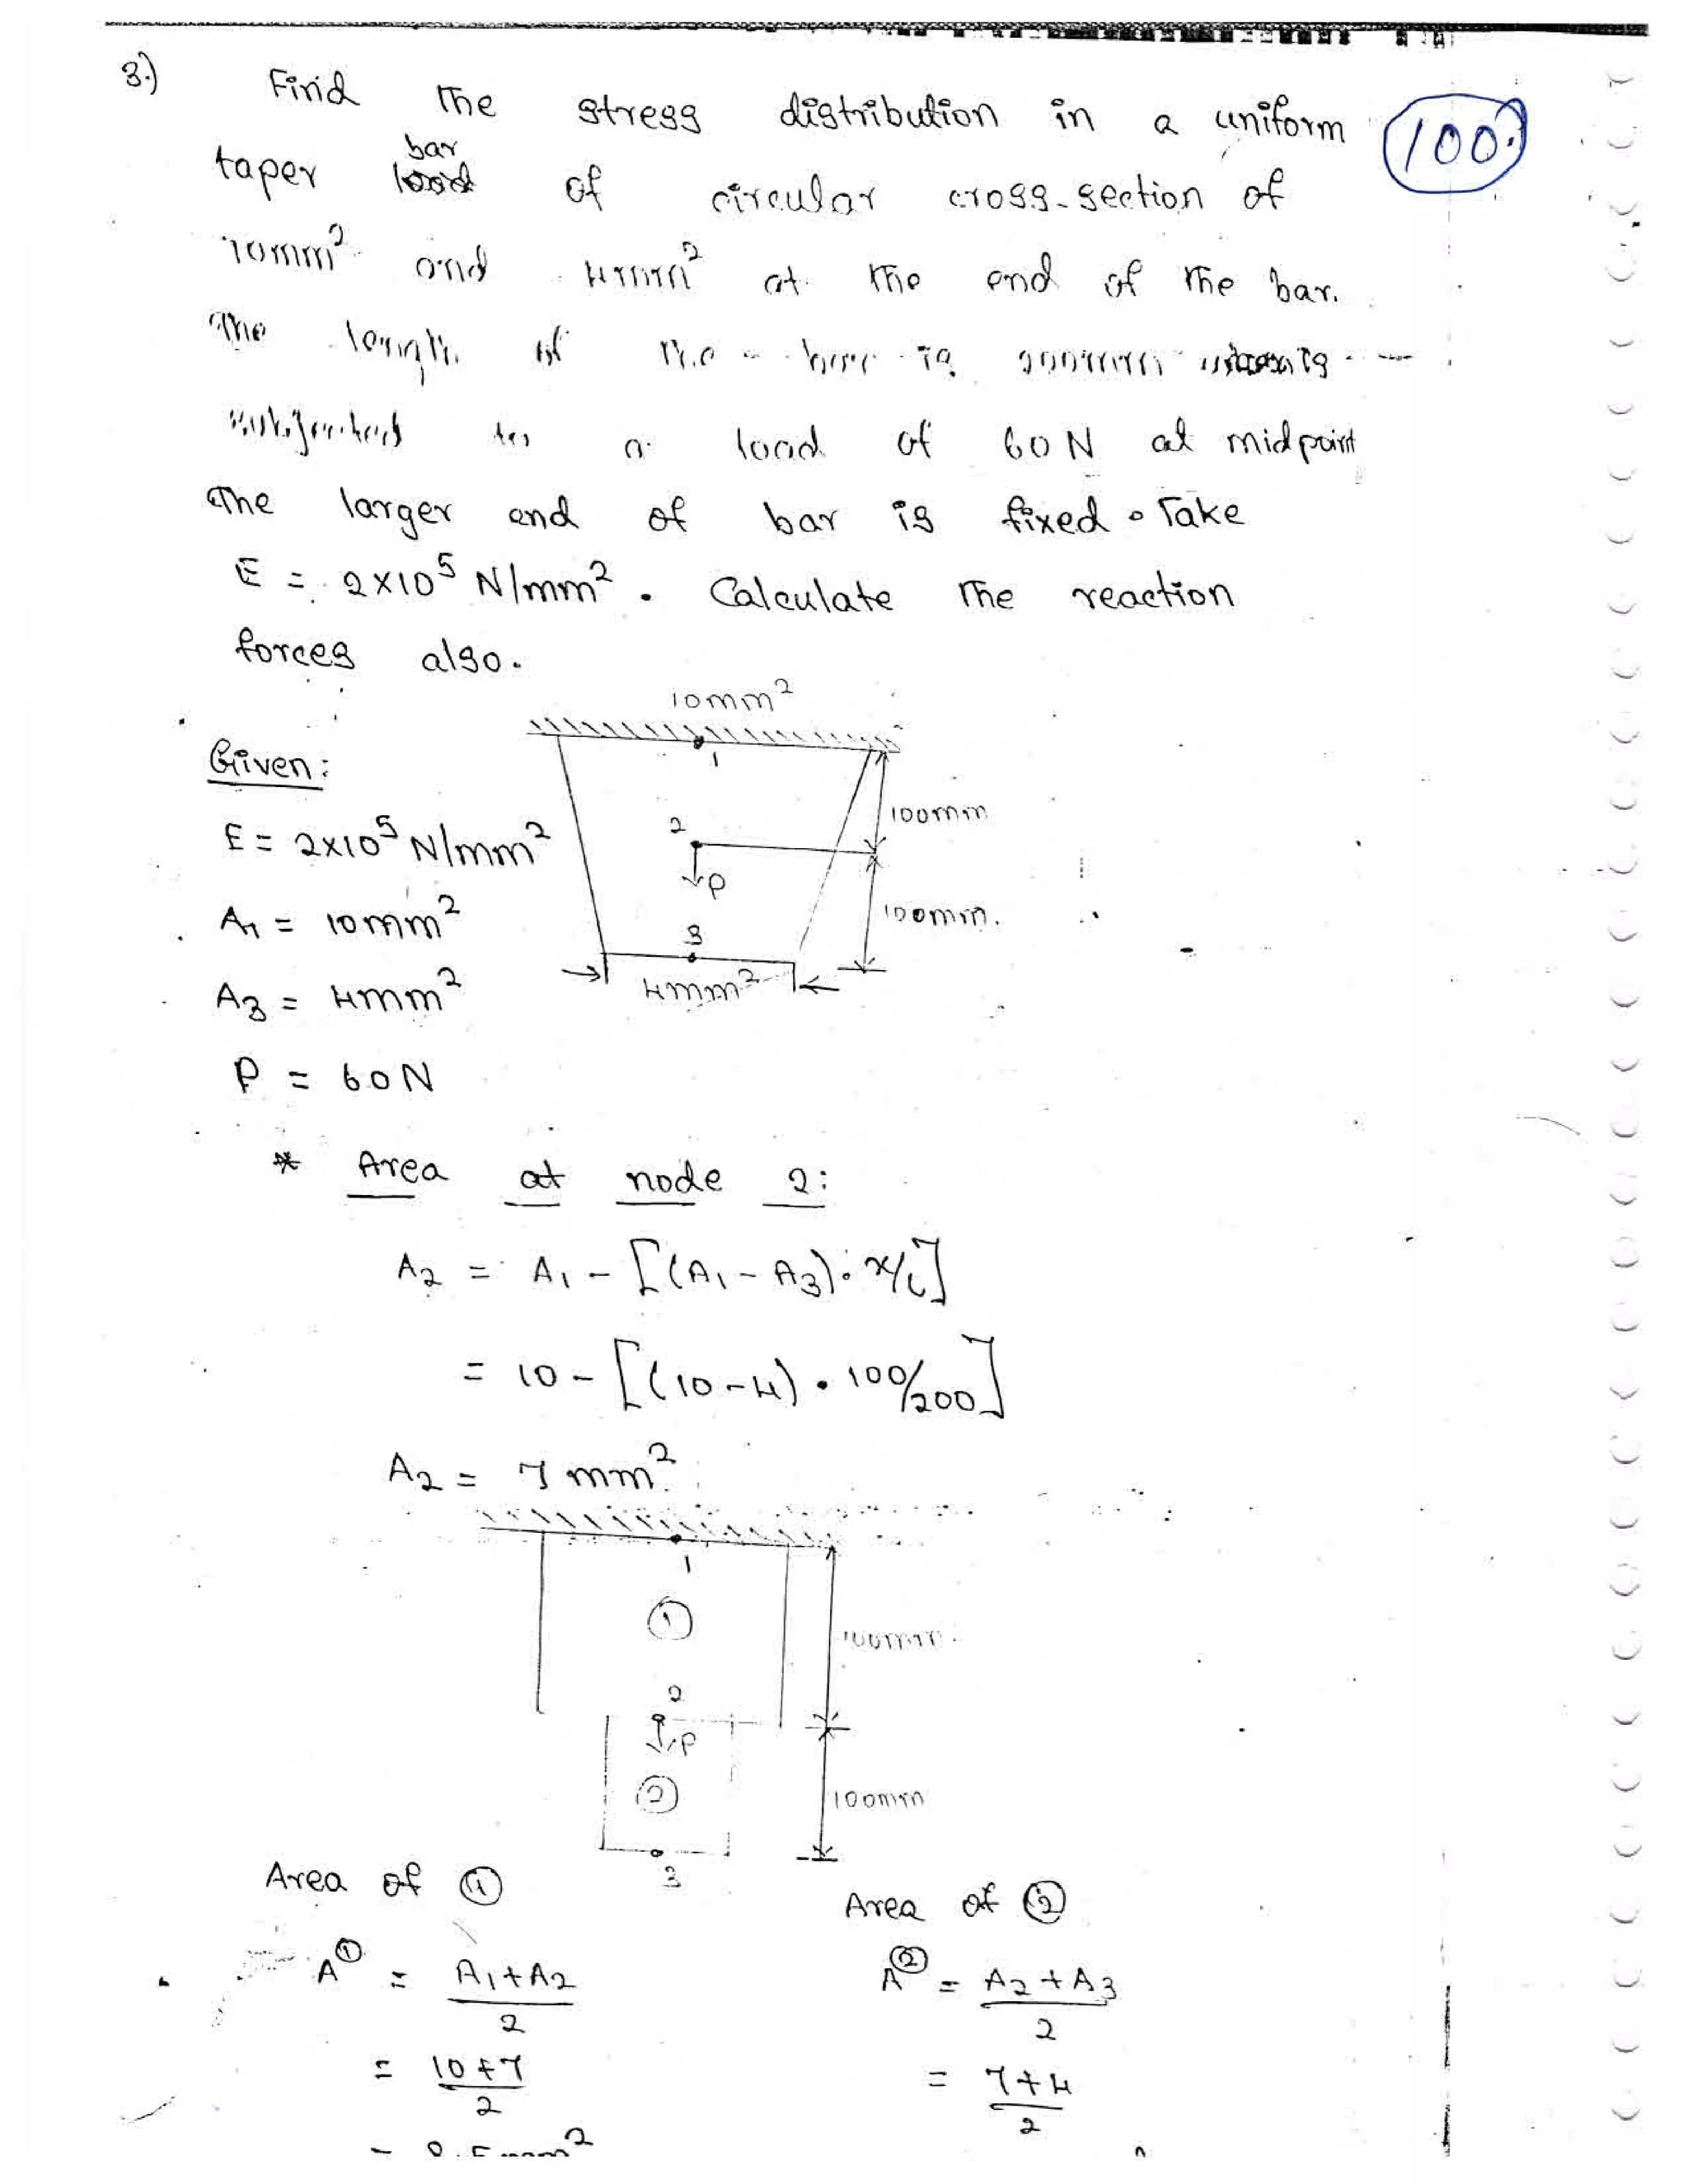 3.) Find the stress distribution in a uniform
100.
bar
taper load of circular cross-section of
10mm² and 4mm² at the end of the bar.
The length of the bar is 200mm is
subjected to a load of 60N at midpoint
The larger end of bar is fixed. Take
E = 2×10⁵ N/mm². Calculate the reaction
forces also.
10mm²
Given:
1
E = 2×10⁵ N/mm²
100mm
2
P
A₁ = 10mm²
100mm.
3
A₃ = 4mm²
4mm²
P = 60N
* Area at node 2:
A₂ = A₁ - [(A₁ - A₃). x/L]
= 10 - [(10-4) . 100/200]
A₂ = 7 mm²
1
①
100mm.
2
P
②
100mm
3
Area of ①
Area of ②
A① = A₁+A₂/2
A② = A₂+A₃/2
= 10+7/2
= 7+4/2